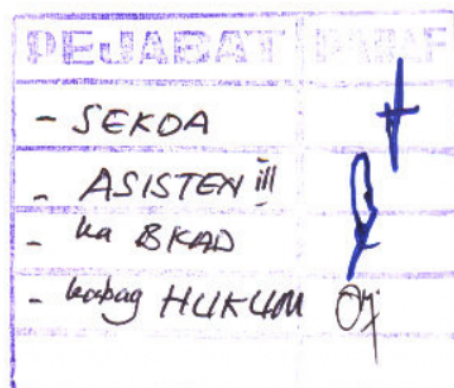 PEJABAT PARAF
- SEKDA
- ASISTEN III
- ka BKAD
- kabag HUKUM